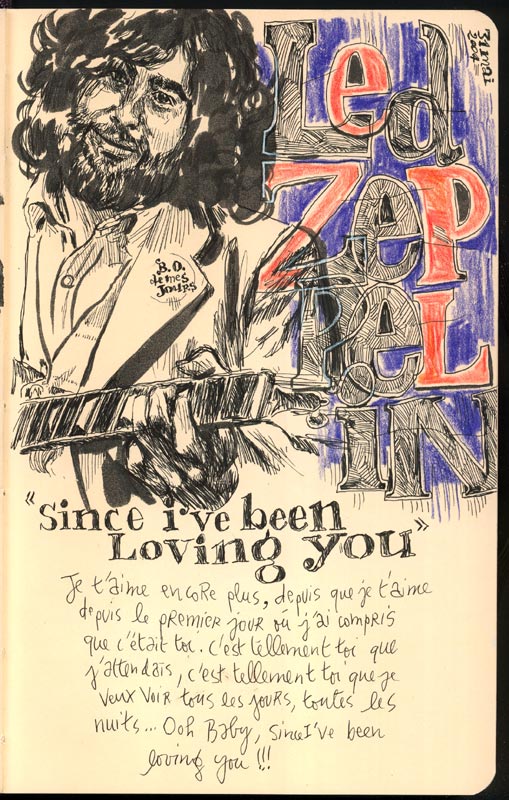 Led
ZeP
PeL
IN
31 mai
B.O.
de mes
Jours
"Since i've been
Loving you"
Je t'aime encore plus, depuis que je t'aime
depuis le premier jour où j'ai compris
que c'était toi. c'est tellement toi que
j'attendais, c'est tellement toi que je
veux voir tous les jours, toutes les
nuits... Ooh Baby, sinceI've been
loving you !!!